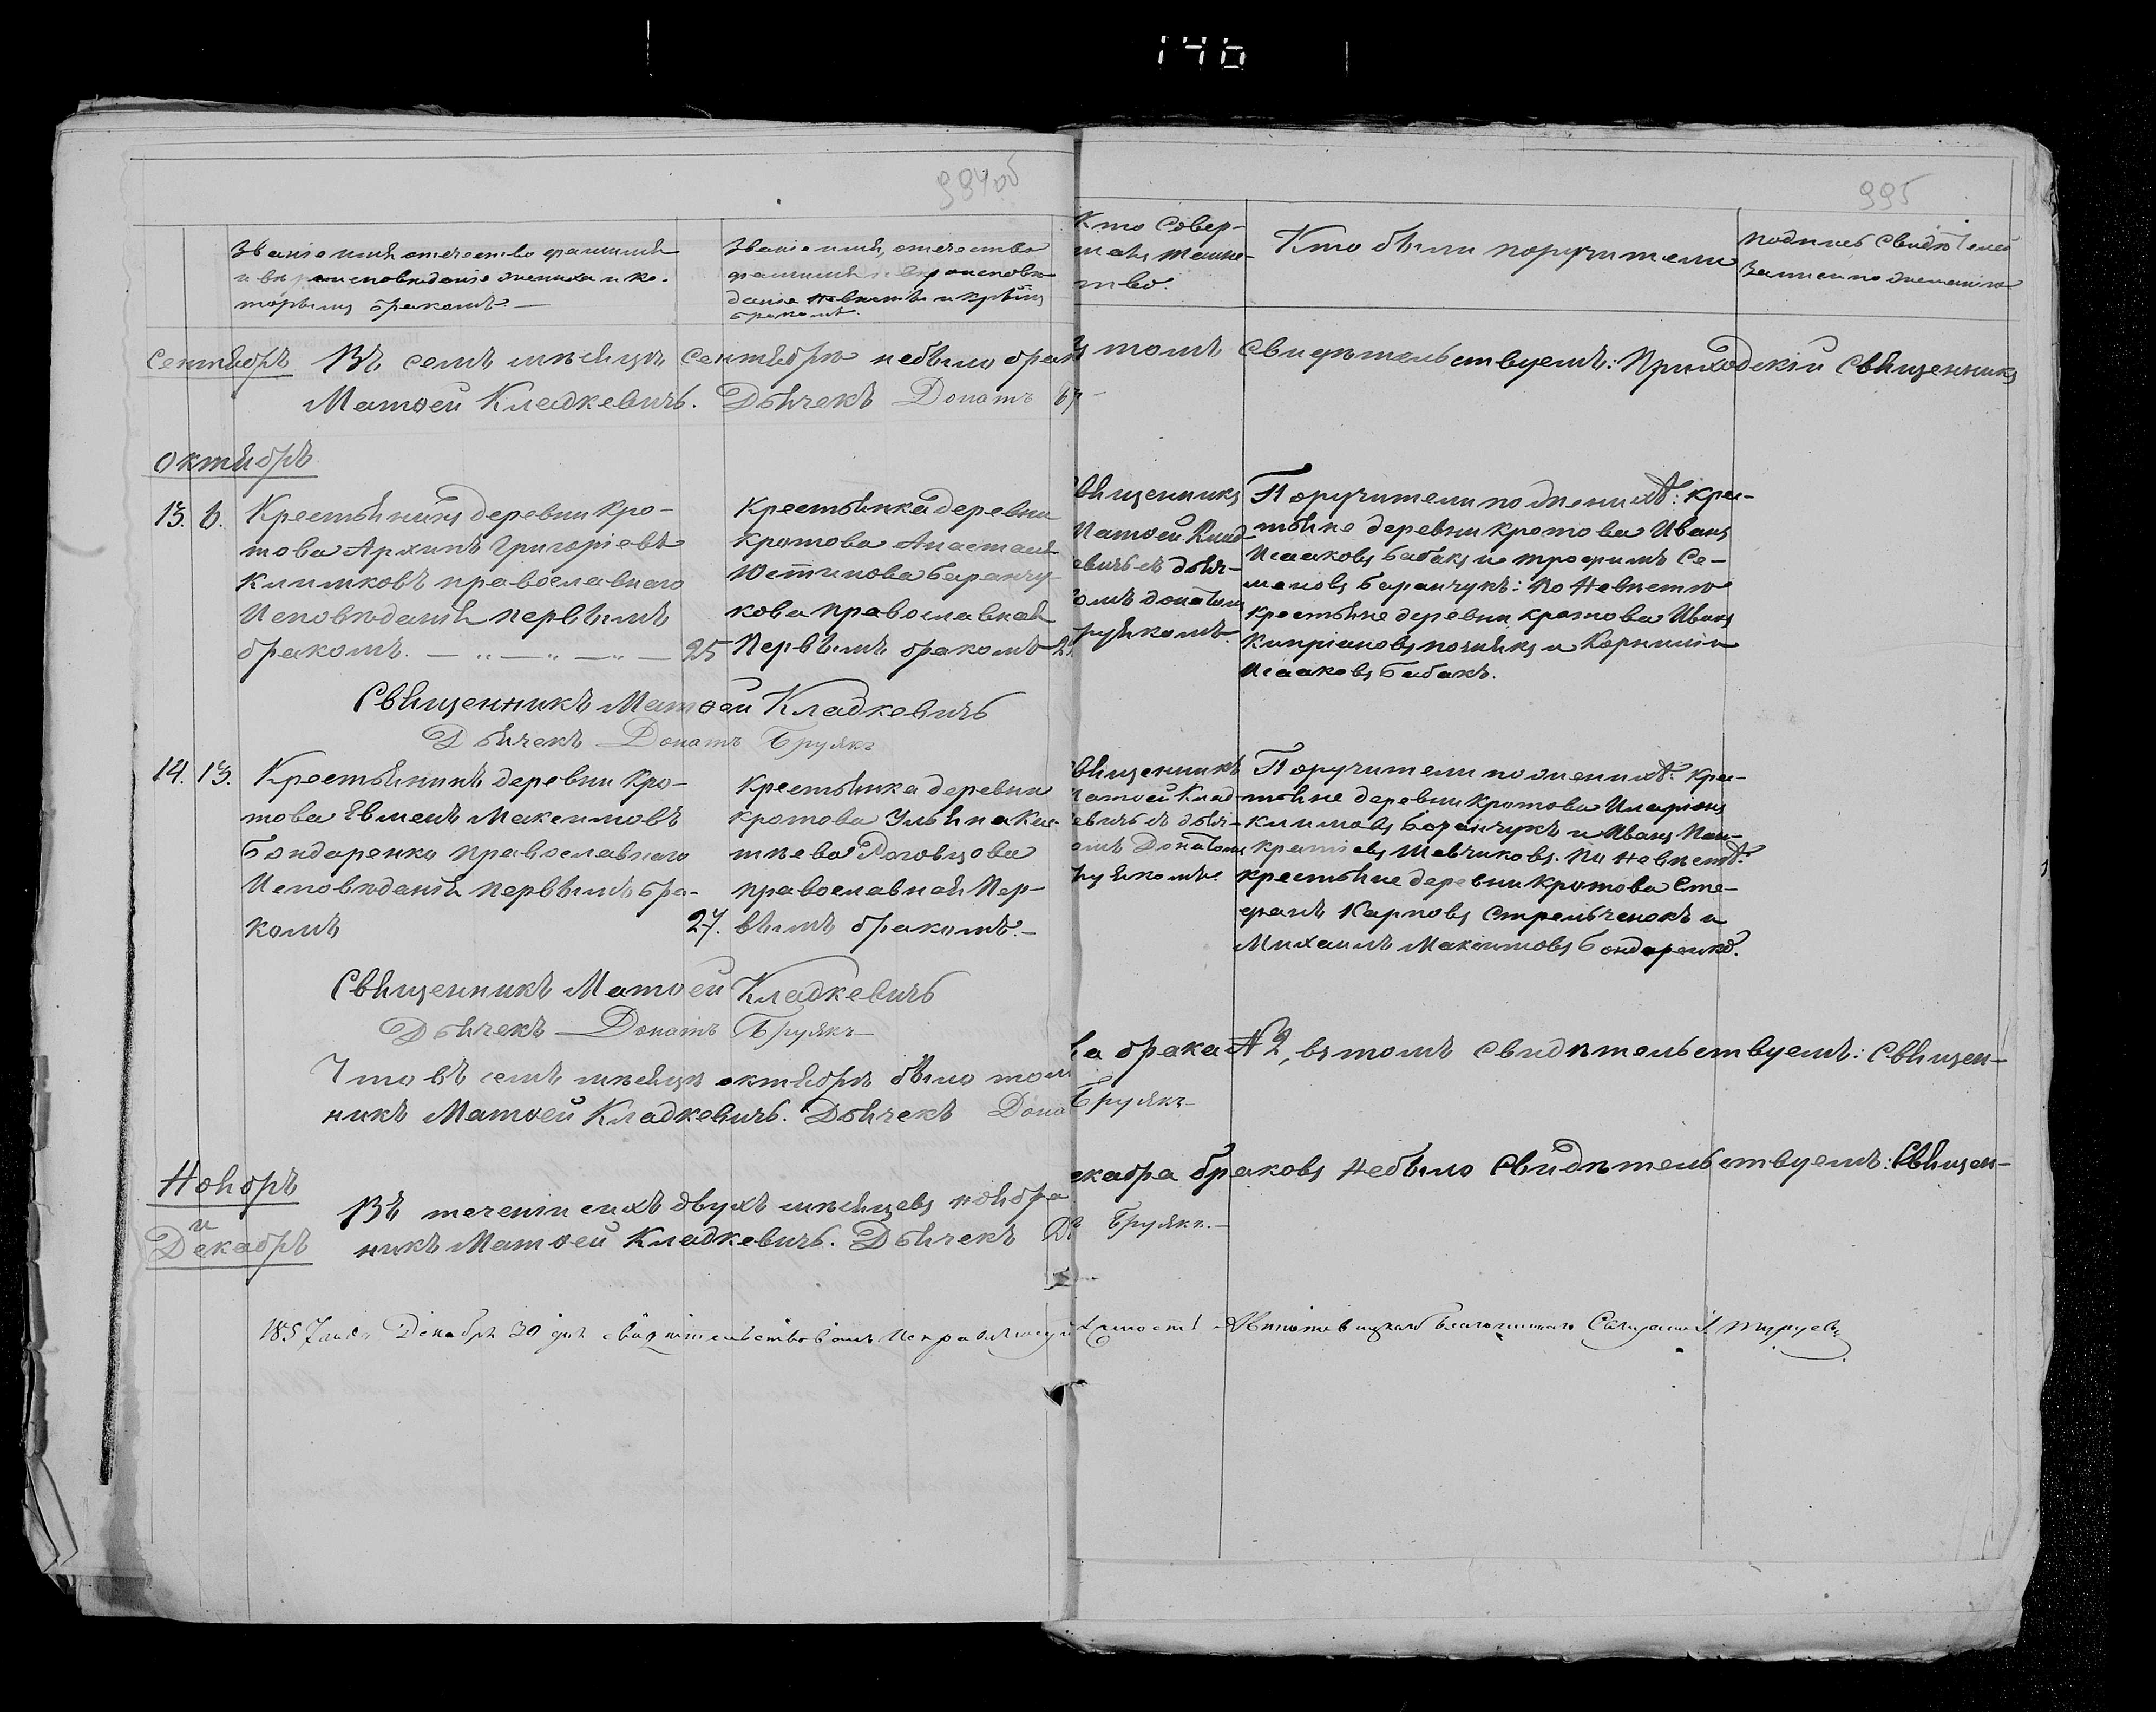 146
994об
995
Званіе имя отечество фамилія
и вѣроисповѣданіе жениха и ко-
торымъ бракомъ. —
Званіе имя, отечество
фамилія и вѣроисповѣ-
даніе невѣсты и кр
бракомъ.
Кто совер-
шалъ таин-
ство.
Кто были поручители
подпись свидѣтелей
записи по желанію
Сентябрь Въ семъ мѣсяцѣ Сентябрѣ небыло брак томъ свидѣтельствуемъ: Приходскій Священникъ
Матѳей Кладкевичъ. Дьячекъ Донатъ
октябрь
13. 6.
Крестьянинъ деревни Кро-
това Архипъ Григоріевъ
Климковъ православнаго
Исповѣданія первымъ
бракомъ. — „ — „ — „ — 25
Крестьянка деревни
Кротова Анастасія
Юстинова Баранчу-
кова православная
Первымъ бракомъ
вященникъ
Матѳей Клад-
евичъ съ дьяч-
омъ Донатомъ
руякомъ.
Поручители по женихѣ: Крес-
тьяне деревни Кротова Иванъ
Исааковъ Бабакъ и Трофимъ Се-
меновъ Баранчукъ: по Невѣстѣ
крестьяне деревни Кротова Иванъ
Кипріановъ и Корнилій
Исааковъ Бабакъ.
Священникъ Матѳей Кладкевичъ
Дьячекъ Донатъ Бруякъ
14. 13.
Крестьянинъ деревни Кро-
това Евменъ Максимовъ
Бондаренко православнаго
Исповѣданія первымъ бра-
комъ 27.
Крестьянка деревни
Кротова Ульяна Кон-
тьева Роговцова
православная Пер-
вымъ бракомъ. —
вященникъ
Матѳей Клад-
евичъ съ дьяч-
омъ Донатомъ
руякомъ.
Поручители по женихѣ: Крес-
тьяне деревни Кротова Иларіонъ
Климовъ Баранчукъ и Иванъ Пан-
кратіевъ Шевчиковъ. По Невѣстѣ:
крестьяне деревни Кротова Сте-
фанъ Карповъ Стрельченокъ и
Михаилъ Максимовъ Бондаренко.
Священникъ Матѳей Кладкевичъ
Дьячекъ Донатъ Бруякъ
Что въ семъ мѣсяцѣ октябрѣ было тол ка брака № 2, въ томъ свидѣтельствуемъ: Священ-
никъ Матѳей Кладкевичъ. Дьячекъ Дона Бруякъ
Ноябрь
и
Декабрь
Въ теченіи сихъ двухъ мѣсяцевъ ноября екабра браковъ небыло свидѣтельствуемъ: Священ-
никъ Матѳей Кладкевичъ. Дьячекъ До Бруякъ. —
1857 Декабря 30 дня свидѣтельствовалъ